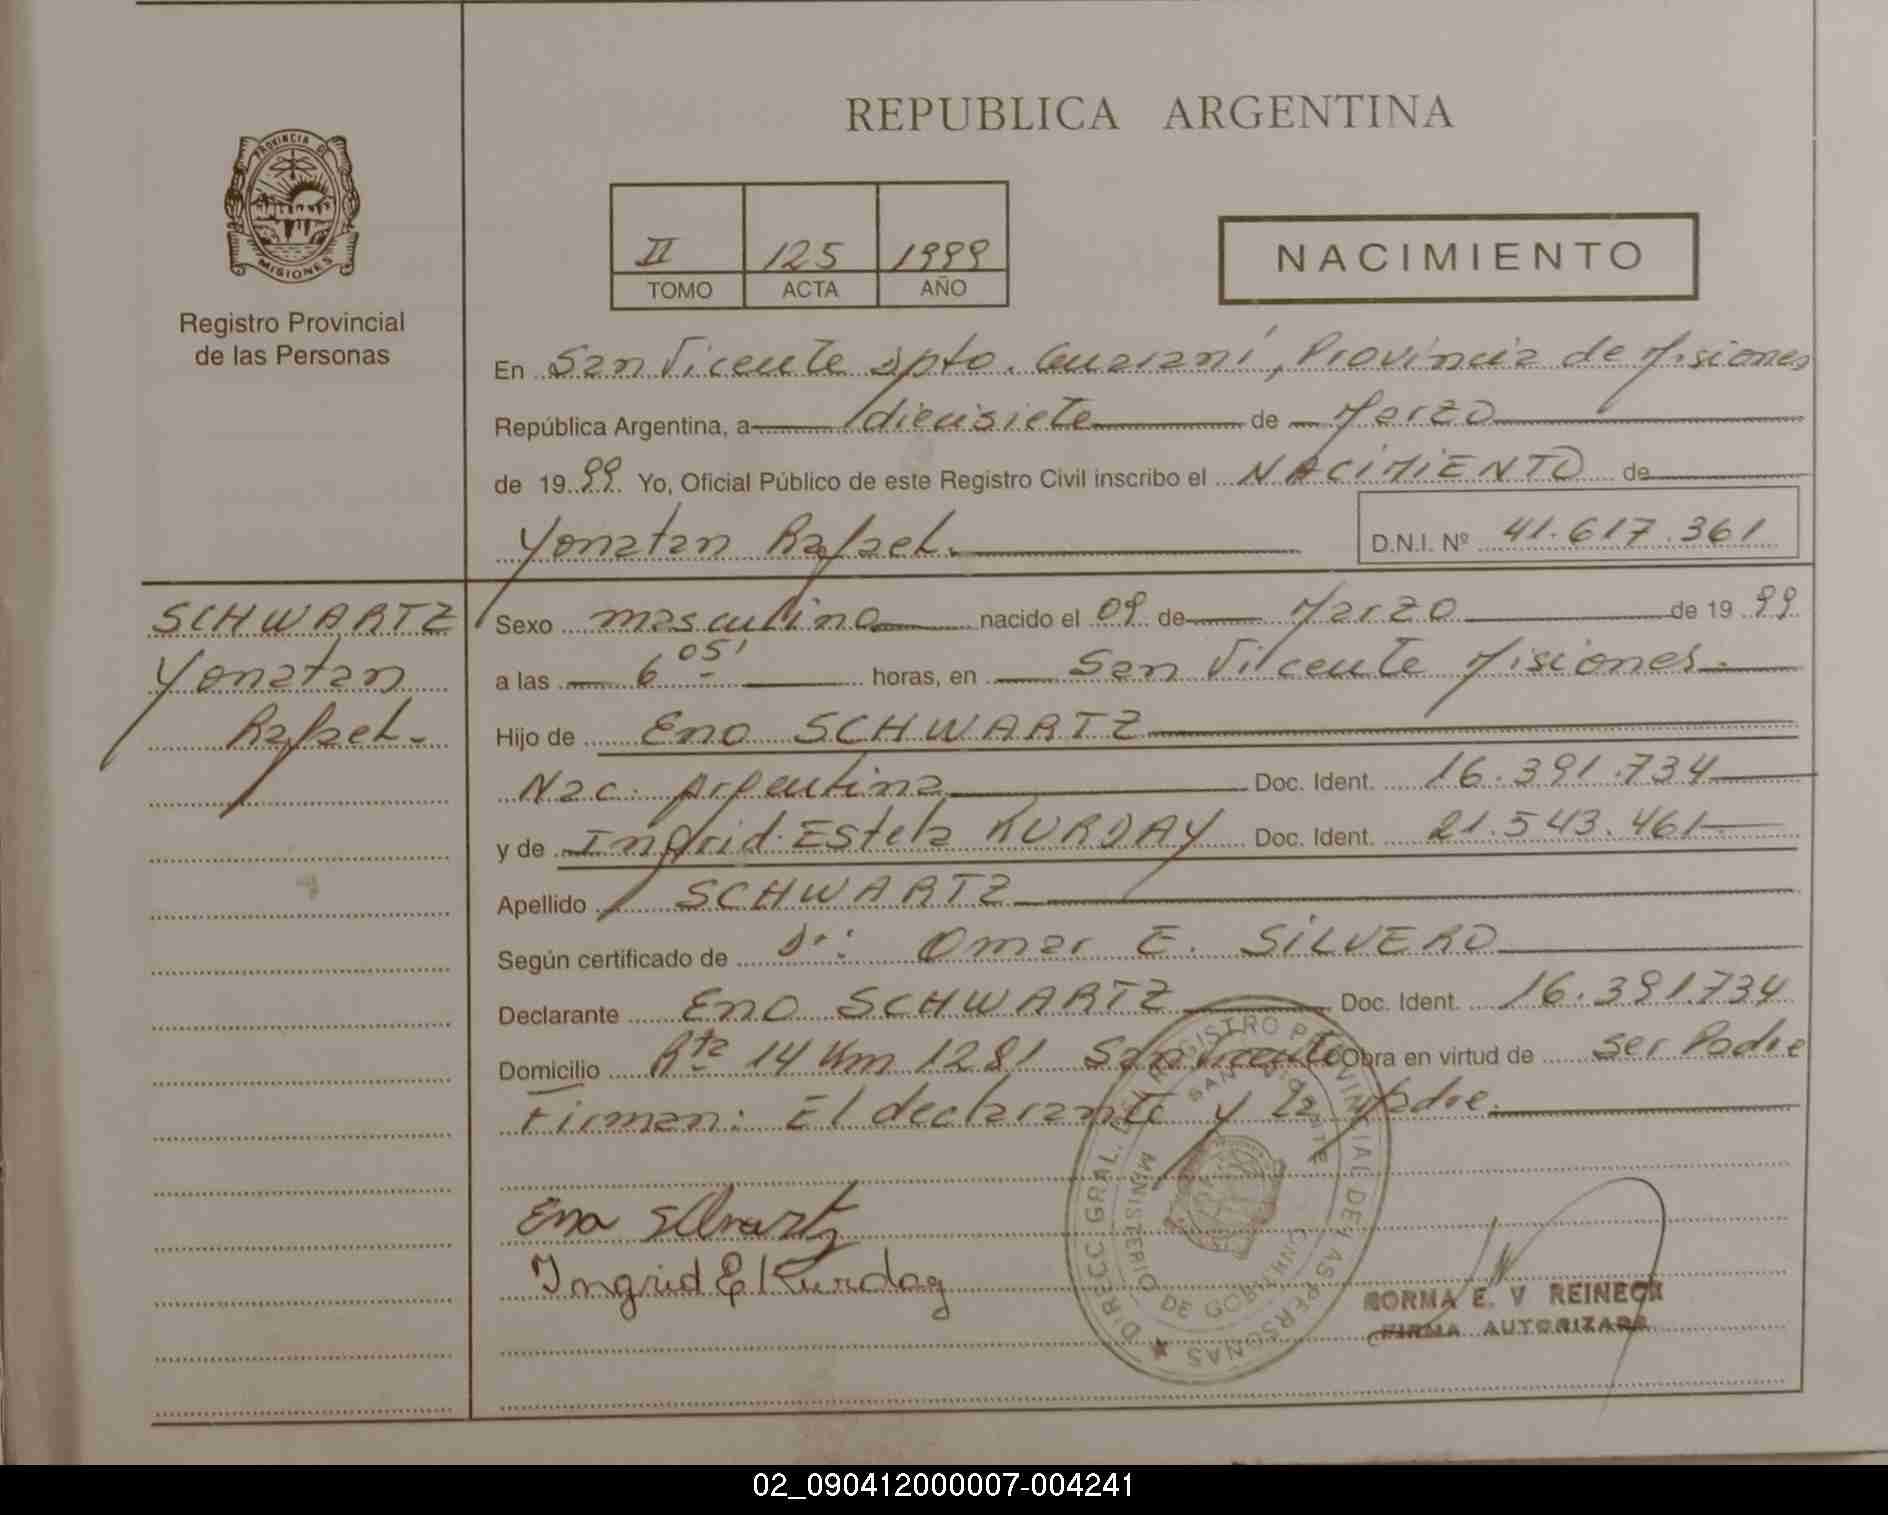 REPUBLICA ARGENTINA
PROVINCIA DE
MISIONES
Registro Provincial
de las Personas
II 125 1999
TOMO ACTA AÑO
NACIMIENTO
En San Vicente Dpto. Guaraní, Provincia de Misiones
República Argentina, a diecisiete de Marzo
de 1999 Yo, Oficial Público de este Registro Civil inscribo el NACIMIENTO de
Yonatan Rafael.
D.N.I. Nº 41.617.361
SCHWARTZ
Yonatan
Rafael.-
Sexo masculino nacido el 09 de Marzo de 1999
a las 6 05' horas, en San Vicente Misiones.-
Hijo de Eno SCHWARTZ
Nac. Argentina Doc. Ident. 16.391.734
y de Ingrid Estela KURDAY Doc. Ident. 21.543.461-
Apellido SCHWARTZ
Según certificado de Dr: Omar E. SILVERO
Declarante Eno SCHWARTZ Doc. Ident. 16.391.734
Domicilio Rta 14 Km 1281 San Vicente Obra en virtud de ser Padre
Firman: El declarante y la Madre.
Eno Schwartz
Ingrid E Kurday
DIRECC. GRAL. DEL REGISTRO PROVINCIAL DE LAS PERSONAS
SAN VICENTE
MINISTERIO DE GOBIERNO
NORMA E. V REINECK
FIRMA AUTORIZADA
02_090412000007-004241